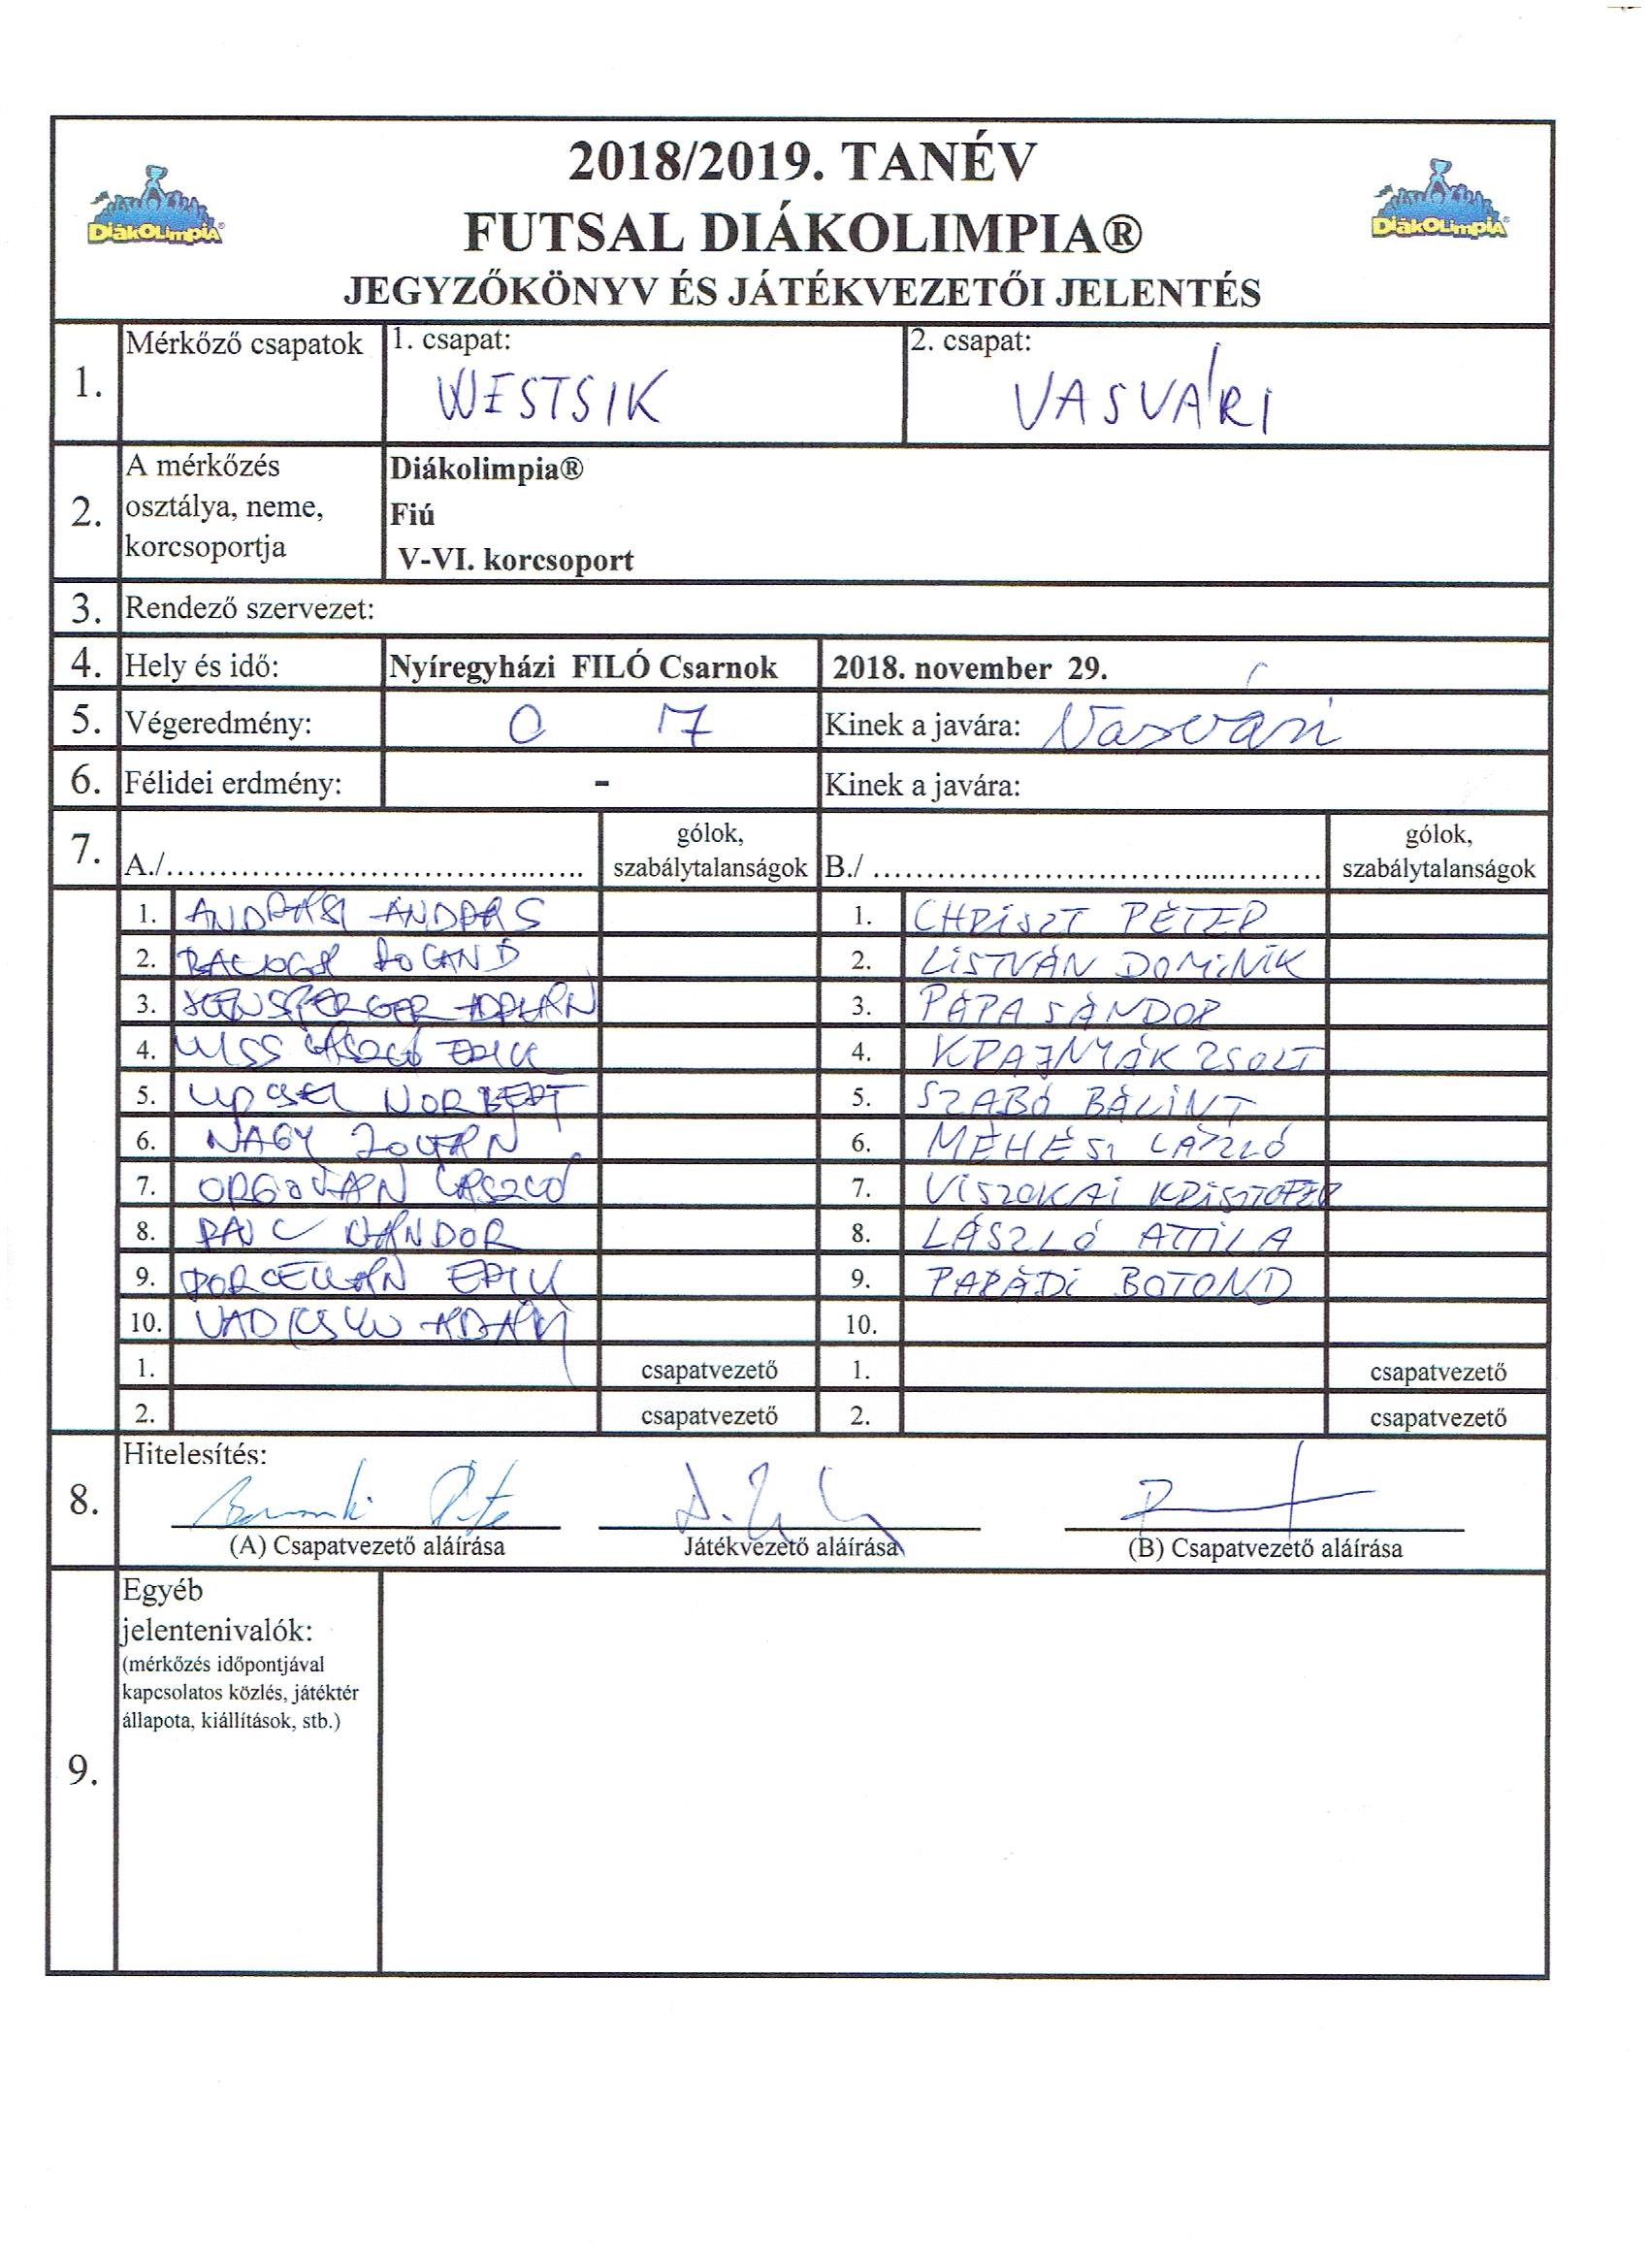 2018/2019. TANÉV
DiákOLimpiA®
DiákOLimpiA®
FUTSAL DIÁKOLIMPIA®
JEGYZŐKÖNYV ÉS JÁTÉKVEZETŐI JELENTÉS
1. Mérkőző csapatok 1. csapat: 2. csapat:
WESTSIK VASVÁRI
2. A mérkőzés osztálya, neme, korcsoportja
Diákolimpia®
Fiú
V-VI. korcsoport
3. Rendező szervezet:
4. Hely és idő: Nyíregyházi FILÓ Csarnok 2018. november 29.
5. Végeredmény: 0 7 Kinek a javára: Vasvári
6. Félidei erdmény: - Kinek a javára:
7. A./........................................ gólok, szabálytalanságok B./ ........................................ gólok, szabálytalanságok
1. ANDRÁSI ANDRÁS 1. CHRISZT PÉTER
2. BALOGH ROLAND 2. LISTVÁN DOMINIK
3. 3. PAPA SÁNDOR
4. KISS LÁSZLÓ ERIK 4. KRAJNYÁK ZSOLT
5. NORBERT 5. SZABÓ BÁLINT
6. NAGY ZOLTÁN 6. MÉHÉSI LÁSZLÓ
7. ORGOVÁN LÁSZLÓ 7. VISZOKAI KRISTOFER
8. NÁNDOR 8. LÁSZLÓ ATTILA
9. PORCELLÁN ERIK 9. PAPÁDI BOTOND
10. ÁDÁM 10.
1. csapatvezető 1. csapatvezető
2. csapatvezető 2. csapatvezető
8. Hitelesítés:
(A) Csapatvezető aláírása Játékvezető aláírása (B) Csapatvezető aláírása
9. Egyéb
jelentenivalók:
(mérkőzés időpontjával
kapcsolatos közlés, játéktér
állapota, kiállítások, stb.)